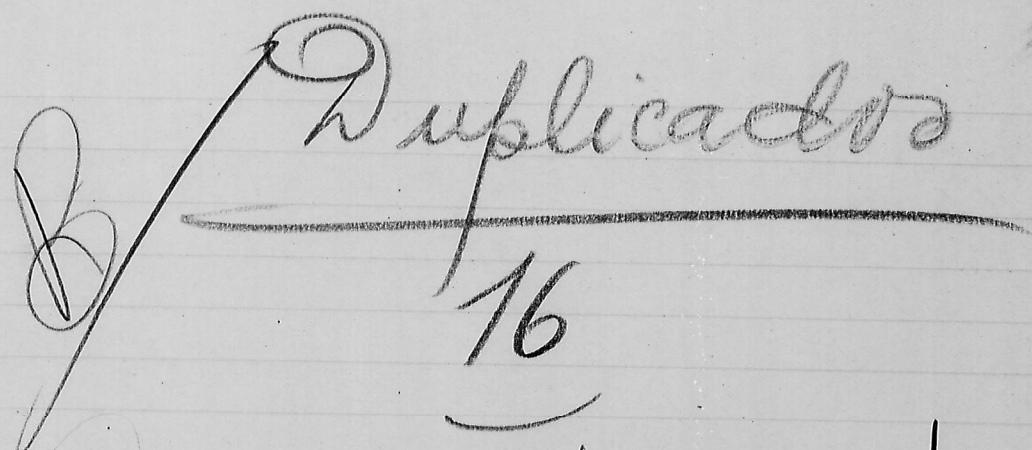 Duplicados
B
16